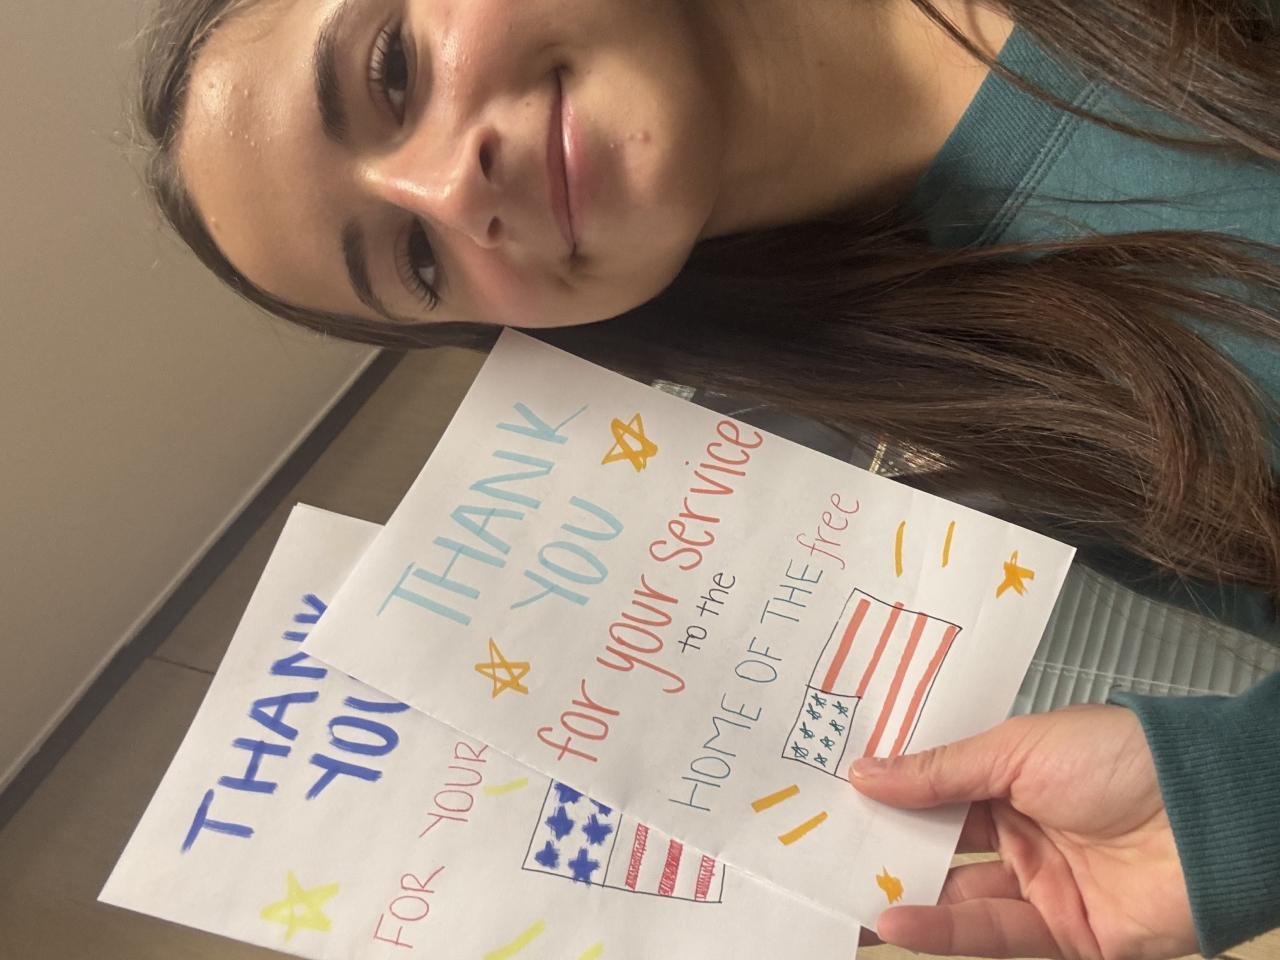 THANK
YOU
for your service
to the
HOME OF THE free
THANK
YOU
FOR YOUR